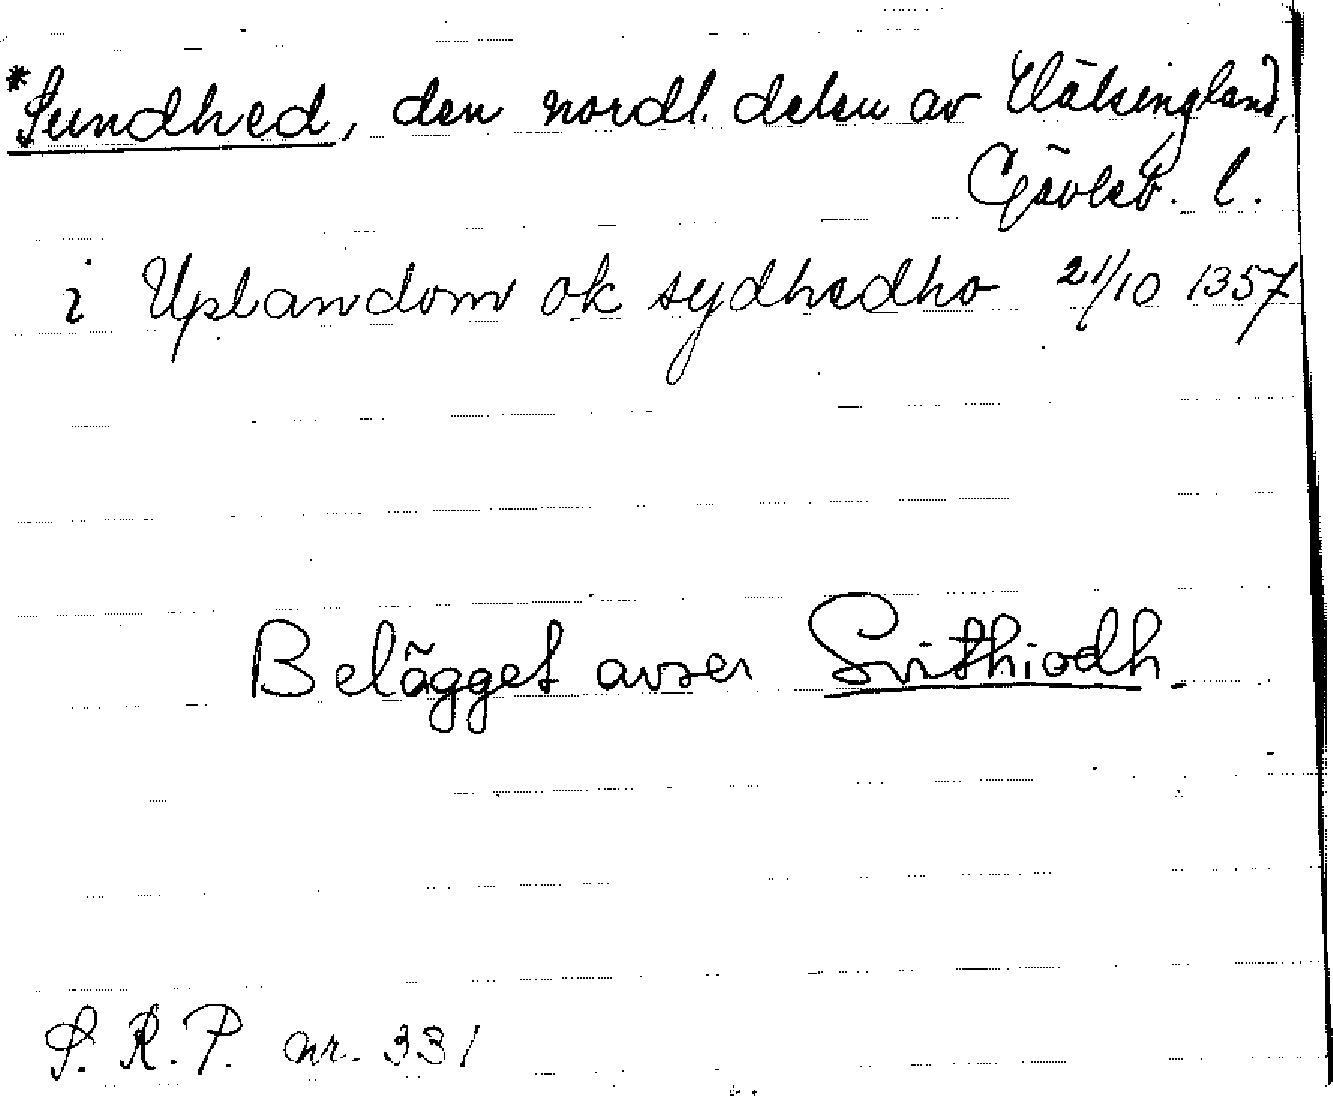 *Sundhed, den nordl. delen av Hälsingland,
Gävleb. l.
i Uplandom ok sydhedho 21/10 1357
Belägget avser Svithiodh.
S. R. P. nr. 331